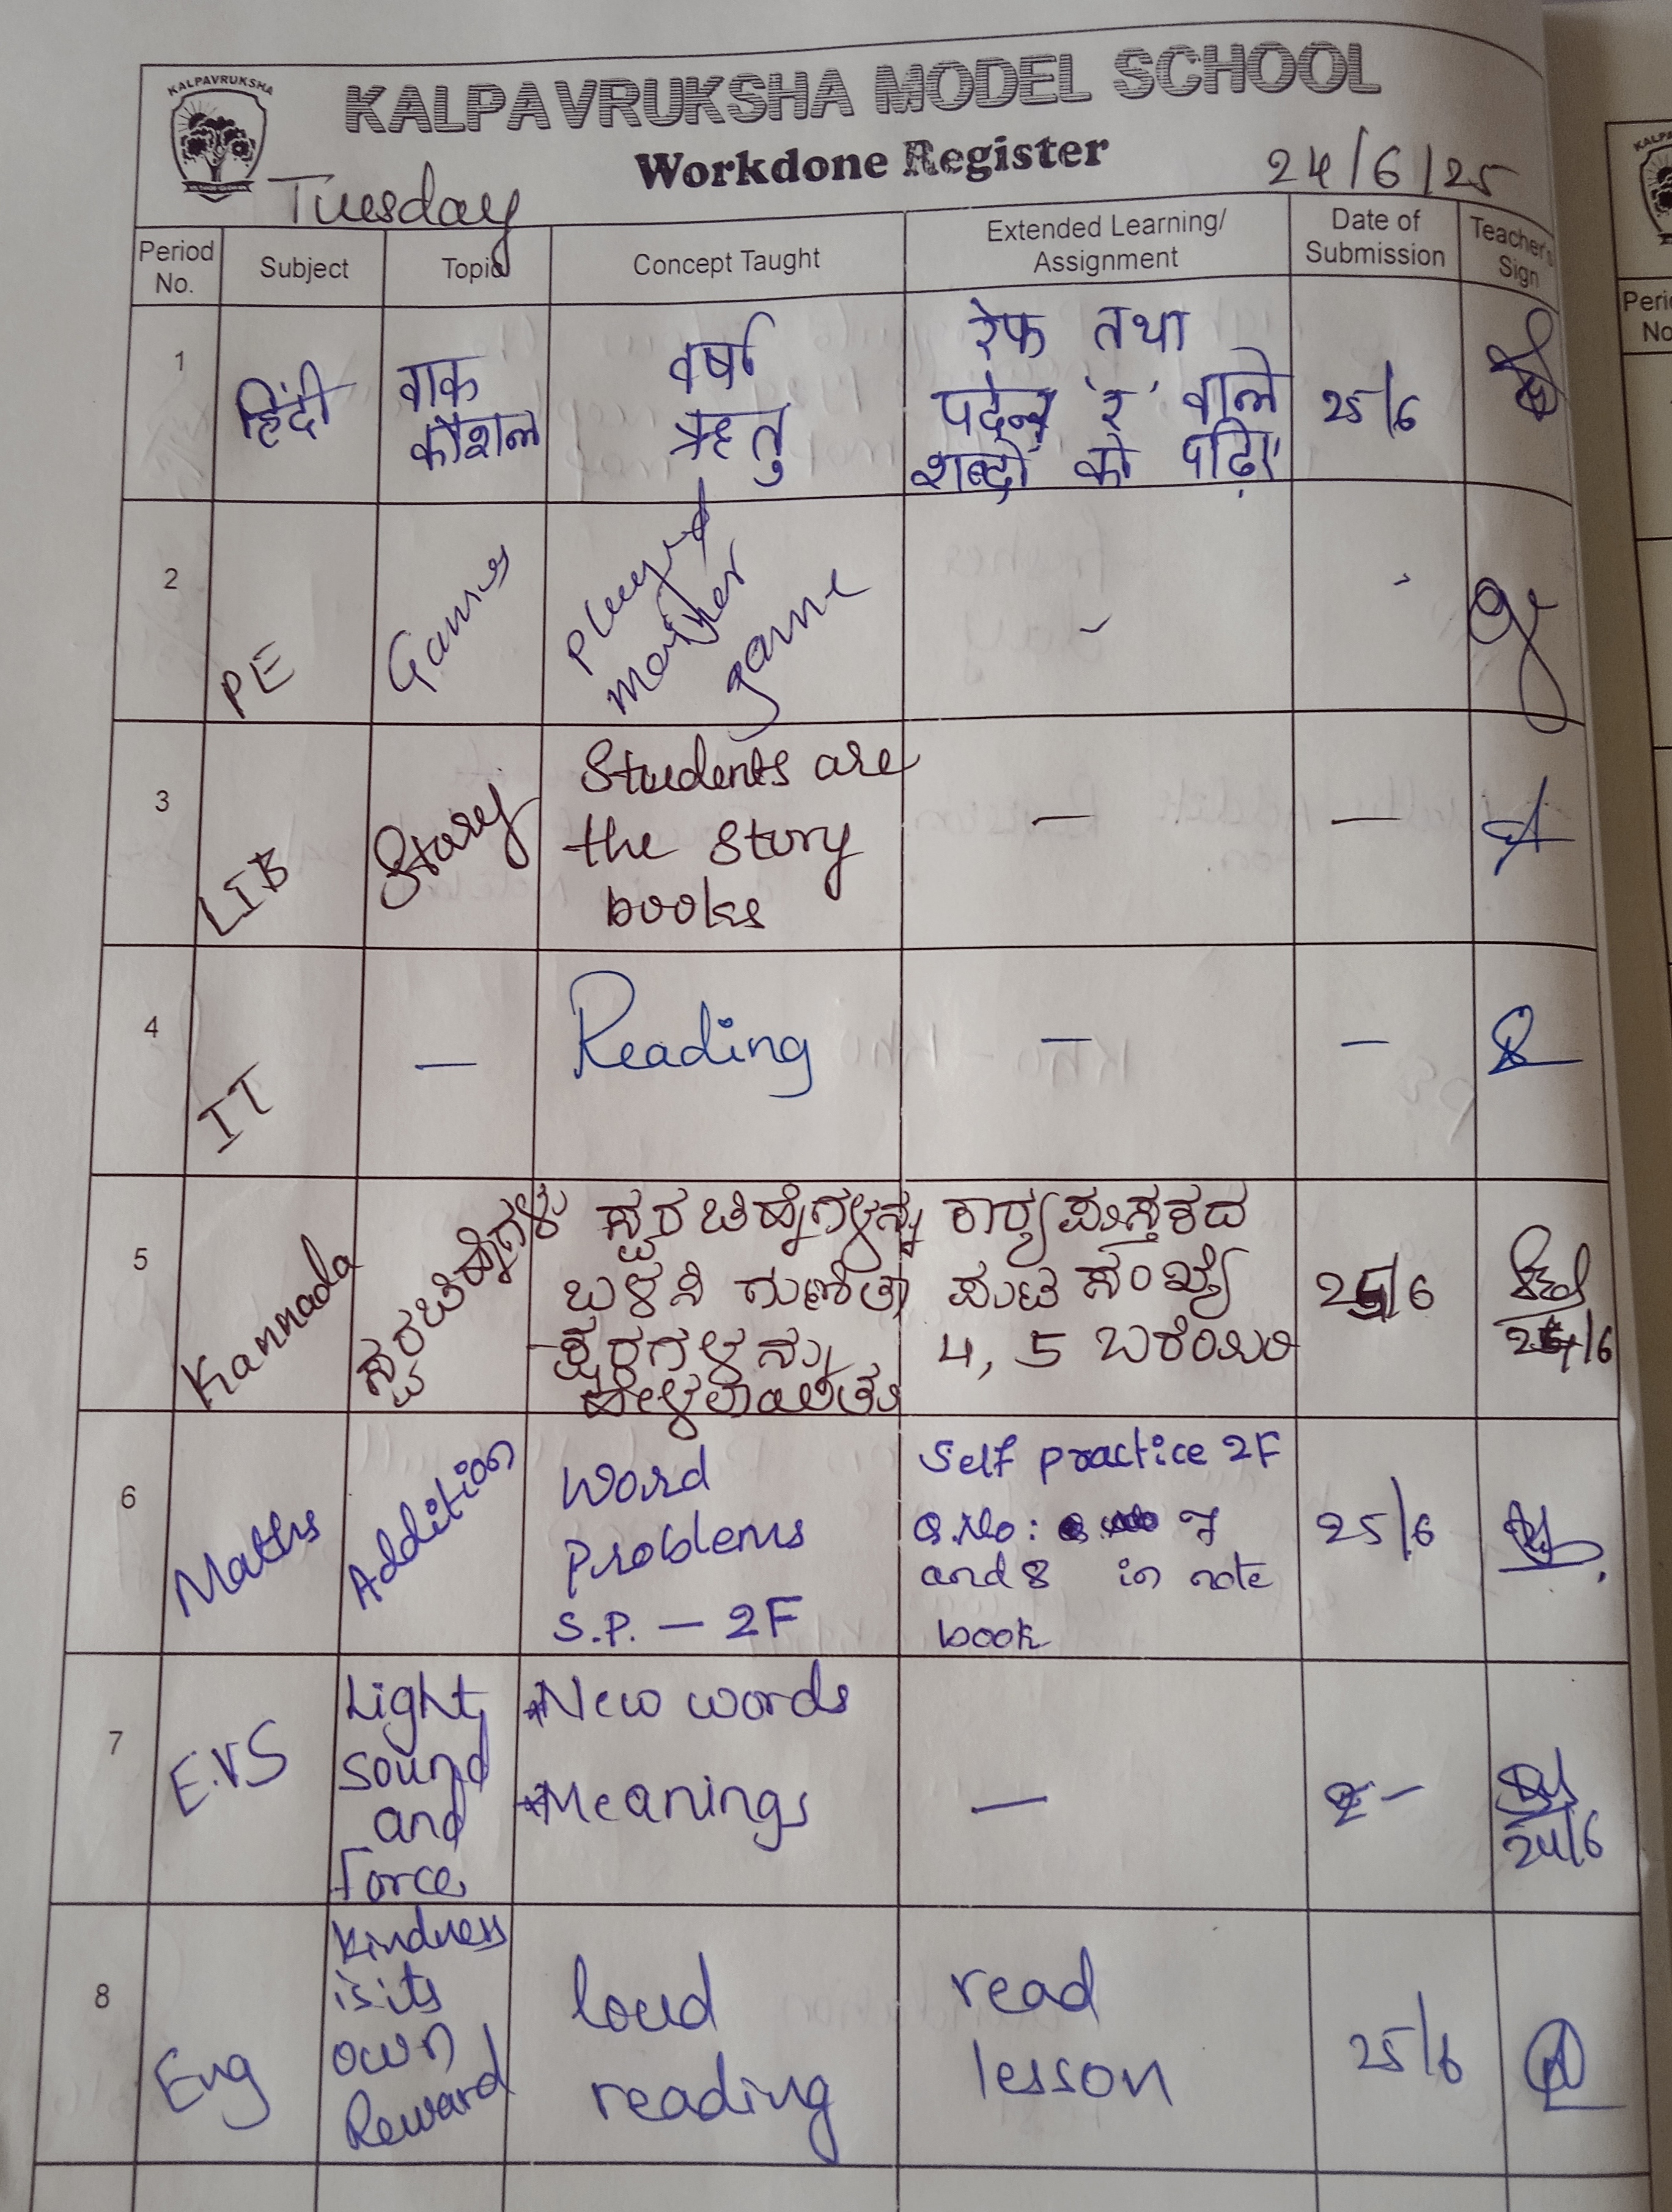 KALPAVRUKSHA
KALPAVRUKSHA MODEL SCHOOL
Workdone Register
Tuesday
24/6/25
Period No.
Subject
Topic
Concept Taught
Extended Learning/
Assignment
Date of
Submission
Teacher's
Sign
1
हिंदी
वाक
कौशल
वर्षा
ऋतु
रेफ तथा
पदेन 'र' वाले
शब्दों को पढ़िए
25/6
2
PE
Games
game
3
LIB
Story
Students are
the story
books
—
—
4
IT
—
Reading
—
—
5
Kannada
ಸ್ವರಚಿಹ್ನೆಗಳು
ಸ್ವರ ಚಿಹ್ನೆಗಳನ್ನು
ಬಳಸಿ ಗುಣಿತಾ
ಕ್ಷರಗಳನ್ನು
ಹೇಳಲಾಯಿತು
ಕಾರ್ಯಪುಸ್ತಕದ
ಪುಟ ಸಂಖ್ಯೆ
4, 5 ಬರೆಯಿರಿ
25/6
24/6
6
Maths
Addition
Word
Problems
S.P. — 2F
Self practice 2F
Q.No: 7
and 8 in note
book
25/6
7
E.VS
Light,
Sound
and
Force
*New words
*Meanings
—
–
24/6
8
Eng
Kindness
is its
own
Reward
loud
reading
read
lesson
25/6